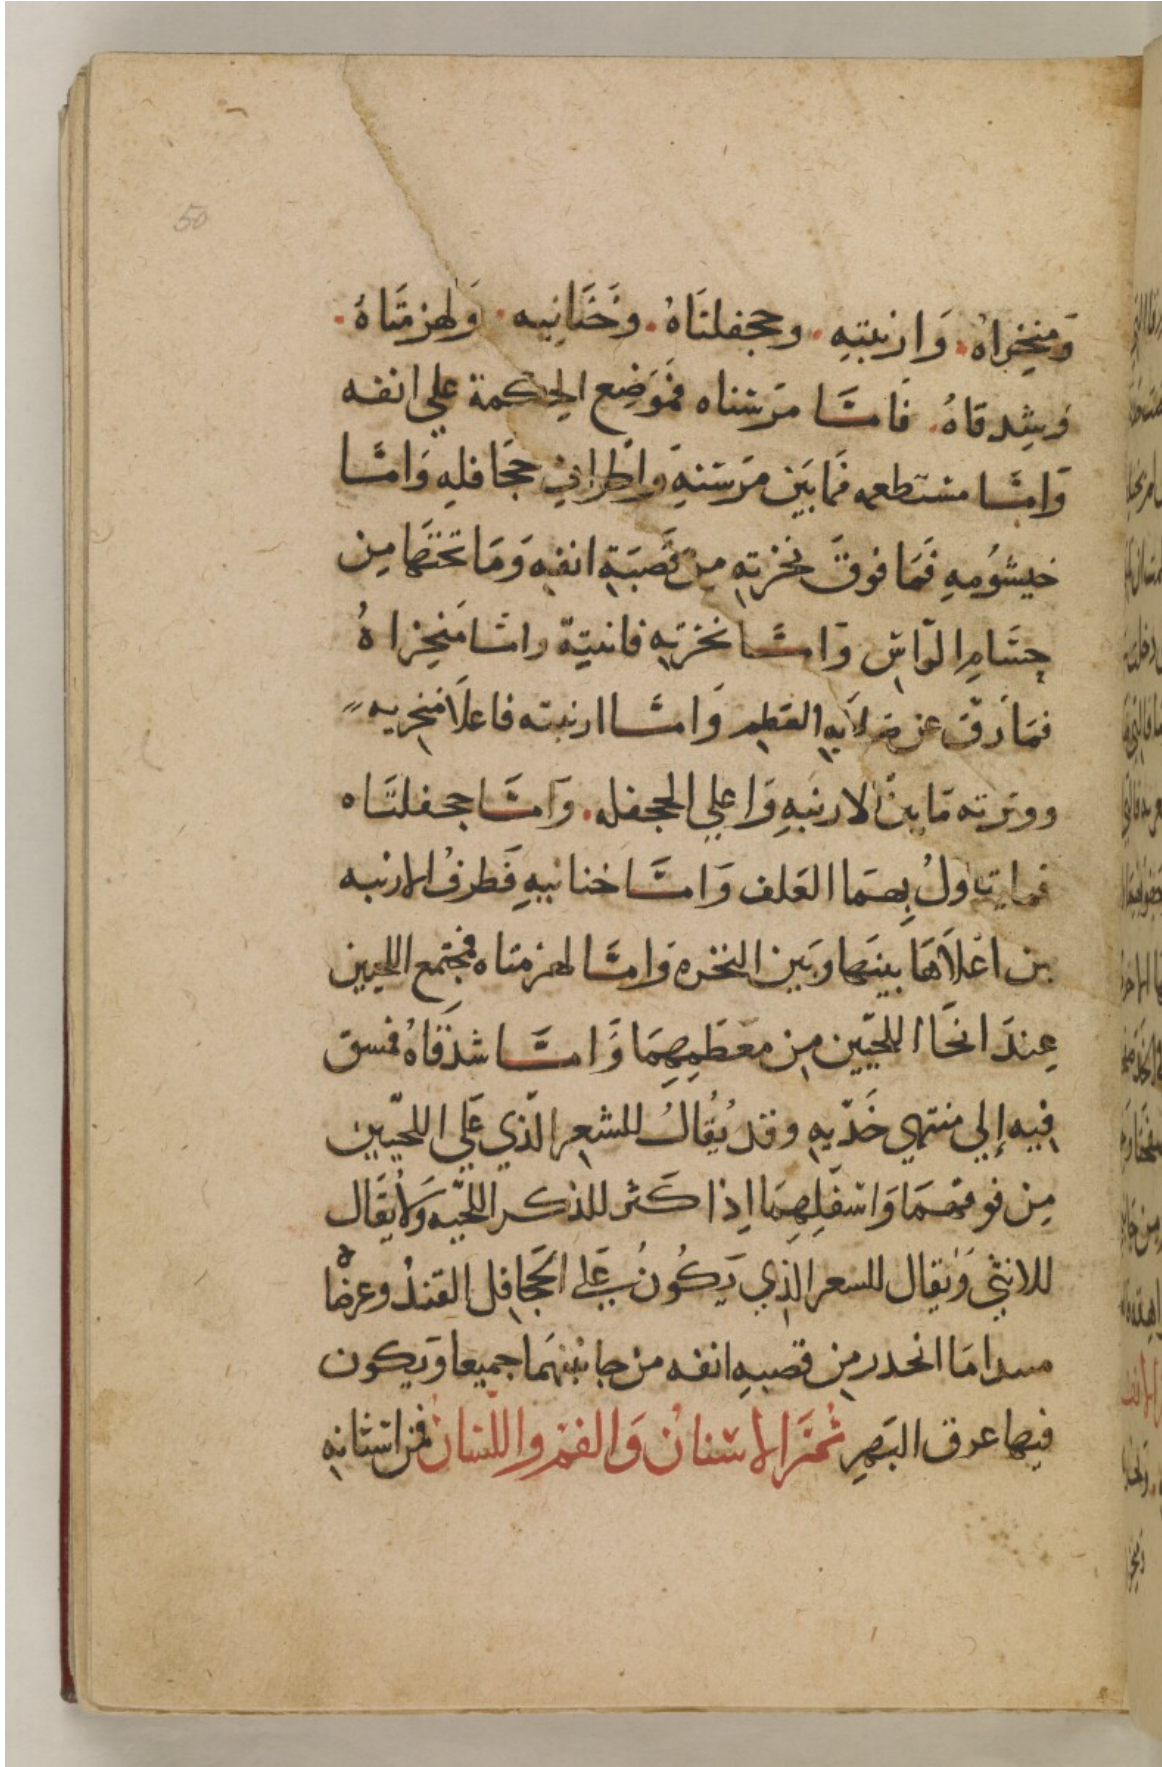 50
وَمنخِراهُ. وَارنبتهِ. وجحفلتَاهُ. وخَنَانِيه. وَلهزمتَاهُ.
وَشِدقاهُ. فَامّا مَرسناه فمَوَضِع الحكمة علي انفه
وَامّا مستطعمه فمَابَين مَرسَنهِ واطرافِ جحَافلهِ وَامّا
خيشُومهِ فَمَا فوقَ نخرَتهِ مِن قصَبَةِ انفهِ وَمَا تحتهَا مِن
خشَامِ الرّاسِ وَامّا نخرَتهِ فانبيّة وامّا مَنخِراهُ
فمَا رَقّ عَن صَلَابهِ العَظمِ وَامّا ارنبته فاعلَا مَنخِريه
ووترته مَا بينَ الارنبهِ وَاعلي الجحفله. وَامّا جحفلتَاه
فما يتناولُ بِهمَا العَلف وَامّا خنابيهِ فَطرفُ الارنبه
من اعَلَاهَا بينهَا وبَين النخره وَامّا لهزمتاه فمجتمع اللحيين
عِندَ انحَا اللحيّين مِن معَظَمِهِمَا وَامّا شدَقاهُ فمسق
فيه إلي منتهي خَدّيهِ وقد يُقالُ للشعرِ الّذي عَلي اللحّيين
مِن فوقهمَا وَاسَفلِهمَا اِذا كَثر للذكر اللحيّه وَلا يُقَال
للانثي وَيقال للسعر الّذي يَكُونُ عَلي الجَحَافِل القندُ وعرضا
مسدا مَا انحدر مِن قصبهِ انفه من جانبيهمَا جميعا وَيكون
فيها عرق البَصرِ ثمّ الاسنانُ وَالفم واللسَانُ فمن اسنانهِ